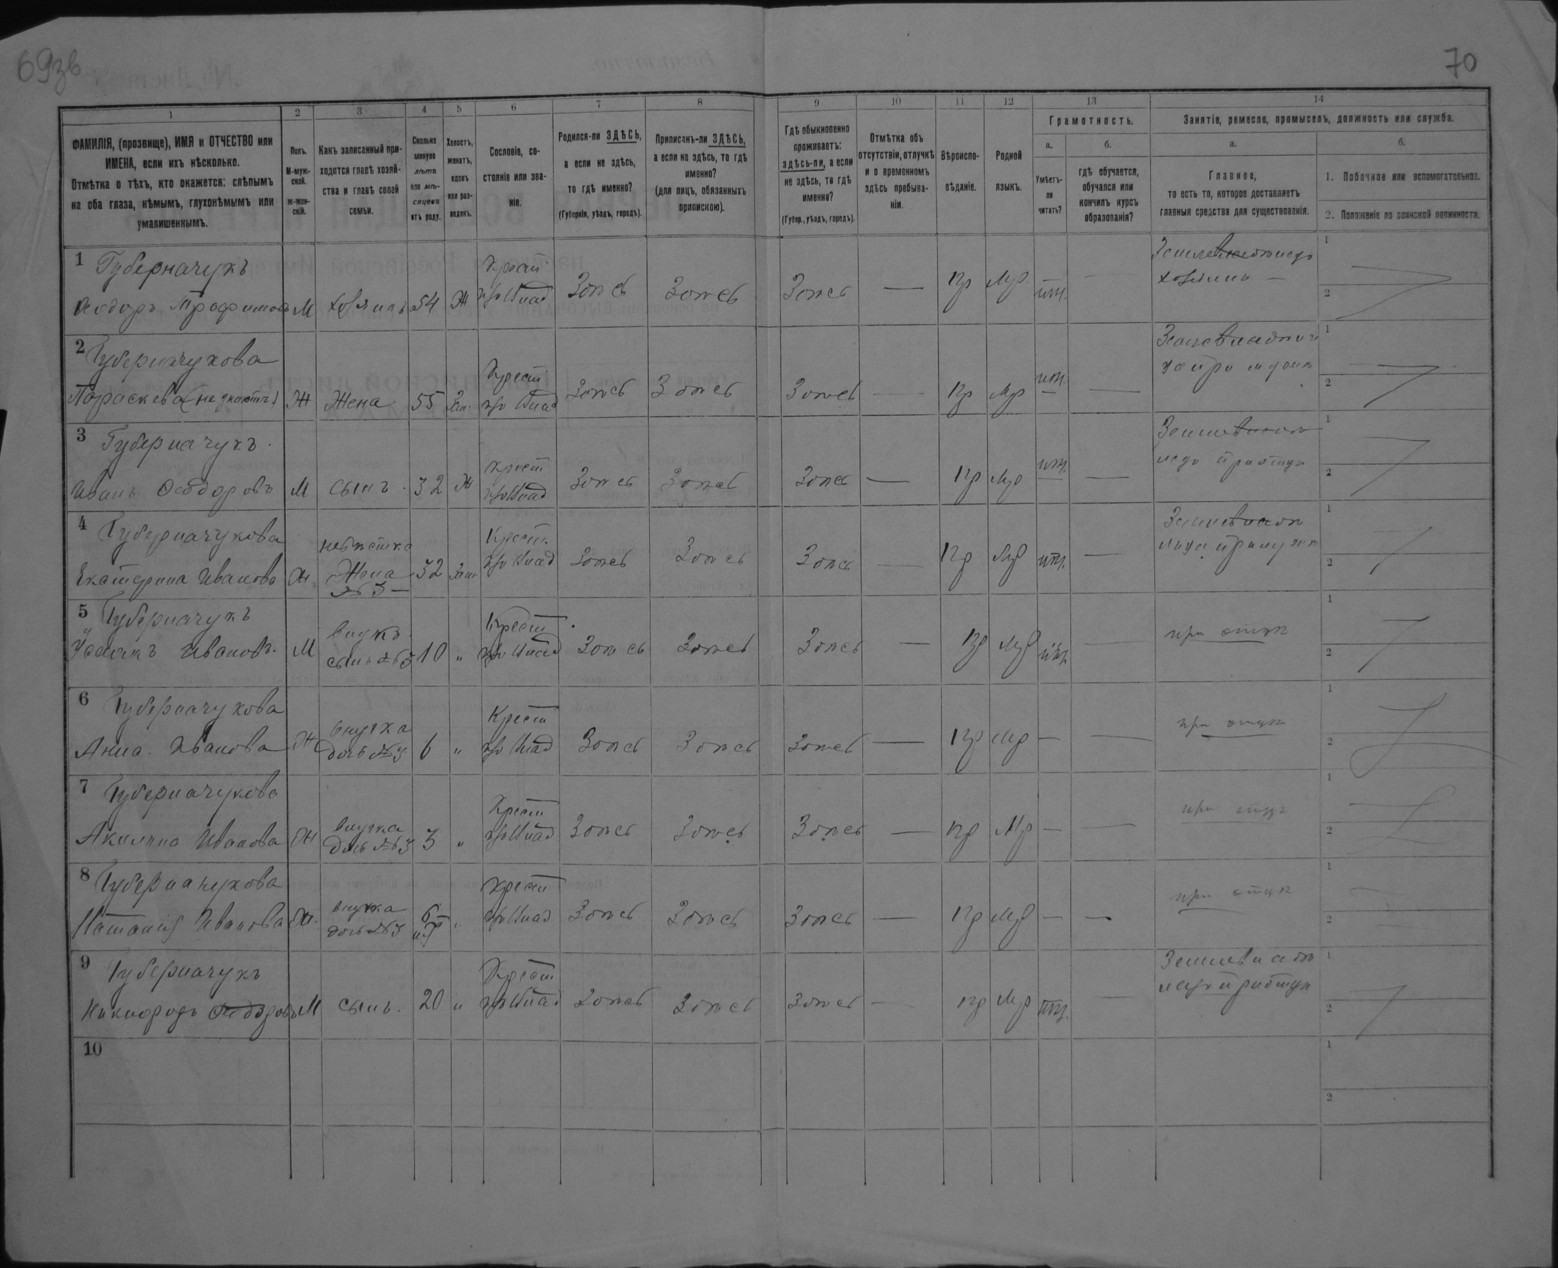 69зв
70
1
2
3
4
5
6
7
8
9
10
11
12
13
14
ФАМИЛІЯ, (прозвище), ИМЯ и ОТЧЕСТВО или
ИМЕНА, если ихъ нѣсколько.
Отмѣтка о тѣхъ, кто окажется: слѣпымъ
на оба глаза, нѣмымъ, глухонѣмымъ или
умалишеннымъ.
Полъ.
М-муж-
ской.
ж-жен-
скій.
Какъ записанный при-
ходится главѣ хозяй-
ства и главѣ своей
семьи.
Сколько
минуло
лѣтъ
или мѣ-
сяцевъ
отъ роду.
Холостъ,
женатъ,
вдовъ
или раз-
веденъ.
Сословіе, со-
стояніе или зва-
ніе.
Родился-ли ЗДѢСЬ,
а если не здѣсь,
то гдѣ именно?
(Губернія, уѣздъ, городъ).
Приписанъ-ли ЗДѢСЬ,
а если не здѣсь, то гдѣ
именно?
(для лицъ, обязанныхъ
припискою).
Гдѣ обыкновенно
проживаетъ:
здѣсь-ли, а если
не здѣсь, то гдѣ
именно?
(Губер., уѣздъ, городъ).
Отмѣтка объ
отсутствіи, отлучкѣ
и о временномъ
здѣсь пребыва-
ніи.
Вѣроиспо-
вѣданіе.
Родной
языкъ.
Грамотность.
а.
Умѣетъ-
ли
читать?
б.
гдѣ обучается,
обучался или
кончилъ курсъ
образованія?
Занятіе, ремесло, промыселъ, должность или служба.
а.
Главное,
то есть то, которое доставляетъ
главныя средства для существованія.
б.
1. Побочное или вспомогательное.
2. Положеніе по воинской повинности.
1 Губерначукъ
Ѳедоръ Трофимовъ М хозяинъ 54 Ж Крест Здѣсь Здѣсь Здѣсь — Пр Мр
хозяинъ —
1
2
2 Губерначукова
Параскева Ж Жена 55 Зам. Крест Здѣсь Здѣсь Здѣсь — Пр Мр нѣт —
1
2
3 Губерначукъ.
Иванъ Ѳеодоровъ М сынъ. 32 Ж Крест Здѣсь Здѣсь Здѣсь — Пр Мр нѣт —
1
2
4 Губерначукова
Екатерина Иванова Ж невѣстка
Жена
№3 — 32 Зам Крест Здѣсь Здѣсь Здѣсь Пр Мр нѣт —
1
2
5 Губерначукъ
Ивановъ. М внукъ
сынъ №3 10 „ Крест Здѣсь Здѣсь Здѣсь — Пр Мр нѣт. — при отцѣ
1
2
6 Губерначукова
Анна Иванова Ж внучка
дочь №3 6 „ Крест Здѣсь Здѣсь Здѣсь — Пр Мр — — при отцѣ
1
2
7 Губерначукова
Акилина Иванова Ж внучка
дочь №3 3 „ Крест Здѣсь Здѣсь Здѣсь — Пр Мр — — при отцѣ
1
2
8 Губерначукова
Наталія Иванова Ж. внучка
дочь №3 6 „ Крест Здѣсь Здѣсь Здѣсь — Пр Мр — — при отцѣ
1
2
9 Губерначукъ
Никифоръ Ѳеодоровъ М сынъ. 20 „ Крест Здѣсь Здѣсь Здѣсь — Пр Мр нѣт. —
1
2
10
1
2